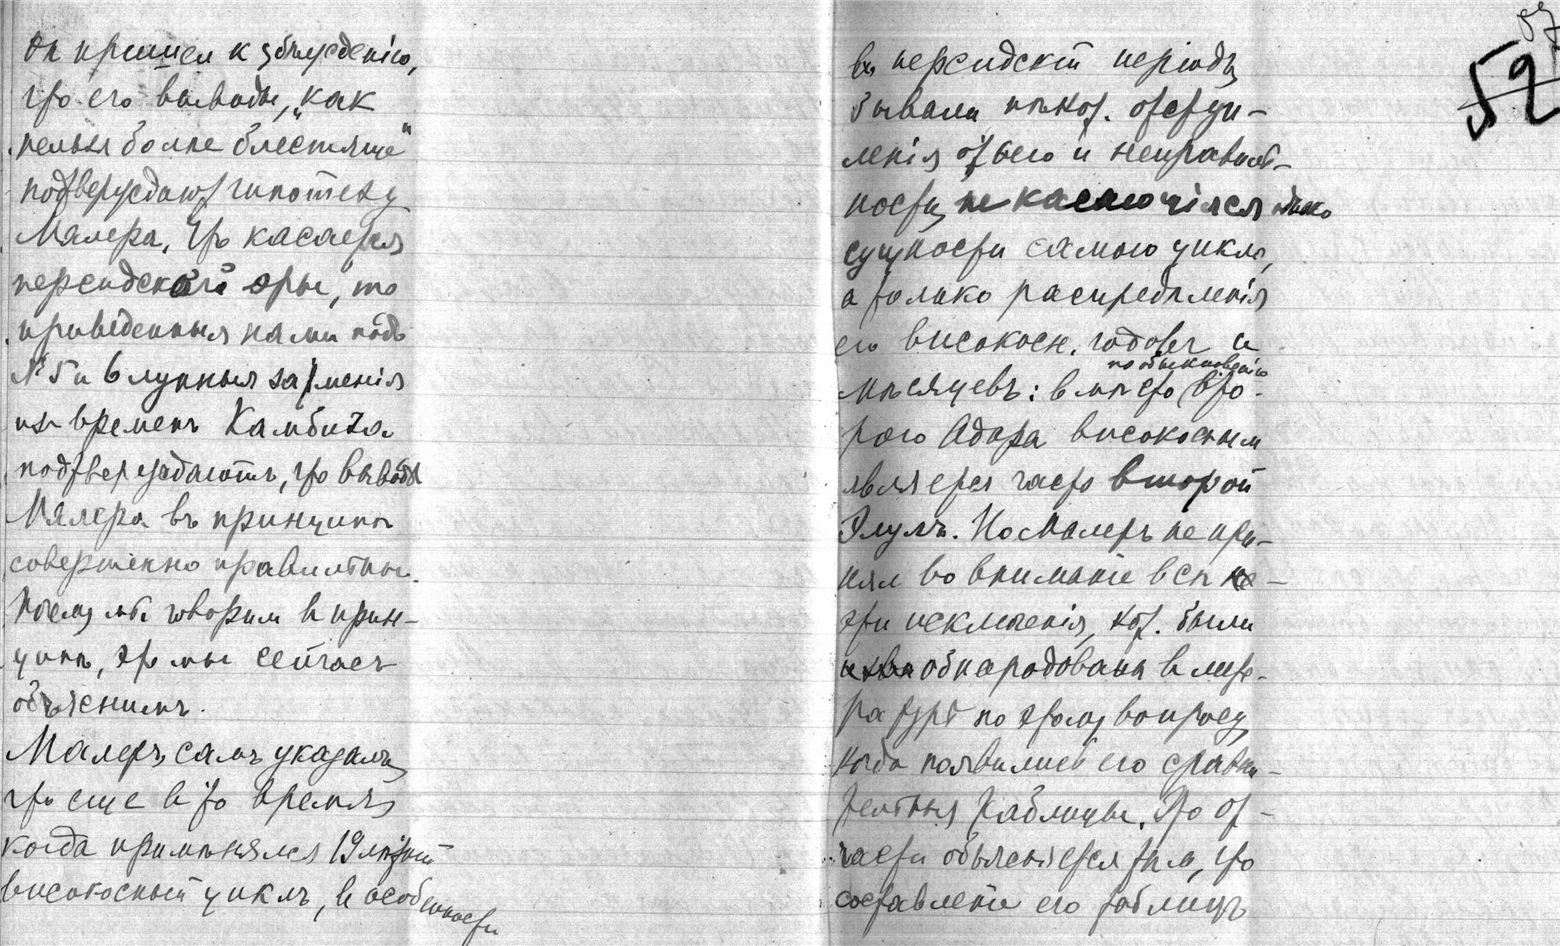 он пришел к убѣжденію,
что его выводы, „как
нельзя болѣе блестяще“
подтверждают гипотезу
Малера. Что касается
персидской эры, то
приведенныя нами подъ
№ 5 и 6 лунныя затменія
из времен Камбиза
подтверждаютъ, что выводы
Малера въ принципѣ
совершенно правильны.
Почему мы говорим в прин-
ципѣ, это мы сейчас
объяснимъ.
Малеръ самъ указалъ,
что еще в то время,
когда примѣнялся 19 лѣтній
високосный циклъ, в особенности
в персидскій періодъ,
бывали нѣкот. отступ-
ленія от него и неправиль-
ности, не касающіяся однако
сущности самого цикла,
а только распредѣленія
его високосн. годовъ и
по обыкновенію
мѣсяцевъ: вмѣсто вто-
рого Адара високосным
является часто второй
Элулъ. Но Малеръ не при-
нял во вниманіе всѣ
эти исключенія, кот. были
обнародованы в лите-
ратурѣ по этому вопросу,
когда появились его сравни-
тельныя таблицы. Это от-
части объясняется тѣм, что
составленіе его таблицъ
52